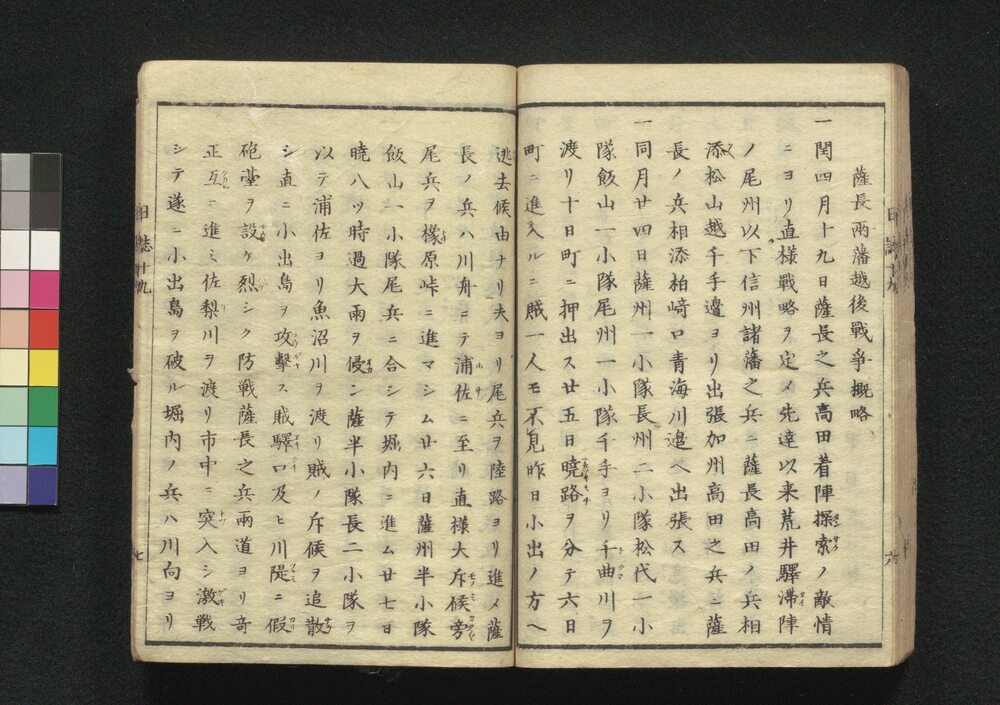 薩長兩藩越後戰爭概略
一閏四月十九日薩長之兵高田着陣探索ノ敵情
ニヨリ直様戰略ヲ定メ先達以来荒井驛滞陣
ノ尾州以下信州諸藩之兵ニ薩長高田ノ兵相
添松山越千手邉ヨリ出張加州高田之兵ニ薩
長ノ兵相添柏﨑口青海川邉ヘ出張ス
一同月廿四日薩州一小隊長州二小隊松代一小
隊飯山一小隊尾州一小隊千手ヨリ千曲川ヲ
渡リ十日町ニ押出ス廿五日曉路ヲ分テ六日
町ニ進入ルニ賊一人モ不見昨日小出ノ方ヘ
六
逃去候由ナリ夫ヨリ尾兵ヲ陸路ヨリ進メ薩
長ノ兵ハ川舟ニテ浦佐ニ至リ直様大斥候旁
尾兵ヲ橡原峠ニ進マシム廿六日薩州半小隊
飯山一小隊尾兵ニ合シテ堀内ニ進ム廿七日
曉八ツ時過大雨ヲ侵シ薩半小隊長二小隊ヲ
以テ浦佐ヨリ魚沼川ヲ渡リ賊ノ斥候ヲ追散
シ直ニ小出島ヲ攻擊ス賊驛口及ヒ川隄ニ假
砲臺ヲ設ケ烈シク防戰薩長之兵兩道ヨリ奇
正互ニ進ミ佐梨川ヲ渡リ市中ニ突入シ激戰
シテ遂ニ小出島ヲ破ル堀内ノ兵ハ川向ヨリ
日誌十九
七